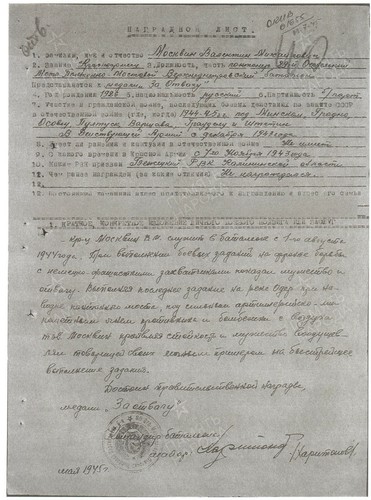 НАГРАДНОЙ ЛИСТ.
1. Фамилия, имя и отчество Москвин Валентин
2. Звание Красноармеец 3. Должность, часть
Мото Понтонно-Мостовой Верхнеднепровский батальон
Представляется к медали За Отвагу
4. Год рождения 1926 5. Национальность русский 6. Партийность
7. Участие в гражданской войне, последующих боевых действиях по защите СССР
и отечественной войне (где, когда) 1944-45г.г. под Минском, Гродно,
Варшава, и Штеттин
В Действующей Армии с декабря 1943 года
8. Имеет ли ранения и контузии в отечественной войне Не имеет
9. С какого времени в Красной Армии с 7го Ноября 1943 года
10. Каким РВК призван РВК Калининской области
11. Чем ранее награжден (за какие отличия) Не награждался
Кр-ц Москвин В.М. служит в батальоне с 1-го августа
1944 года. При выполнении боевых заданий на фронте борьбы
с немецко-фашистскими захватчиками показал мужество и
отвагу. Выполняя последнее задание на реке Одер при на-
водке понтонного моста, под сильным артиллерийско-ми-
нометным огнем противника и бомбежкой с воздуха
тов. Москвин проявил стойкость и мужество воодушев-
ляя товарищей своим личным примером на быстрейшее
выполнение задания.
Достоин правительственной награды
медали "За отвагу"
Командир батальона
майор /Харитонов/
мая 1945 г.